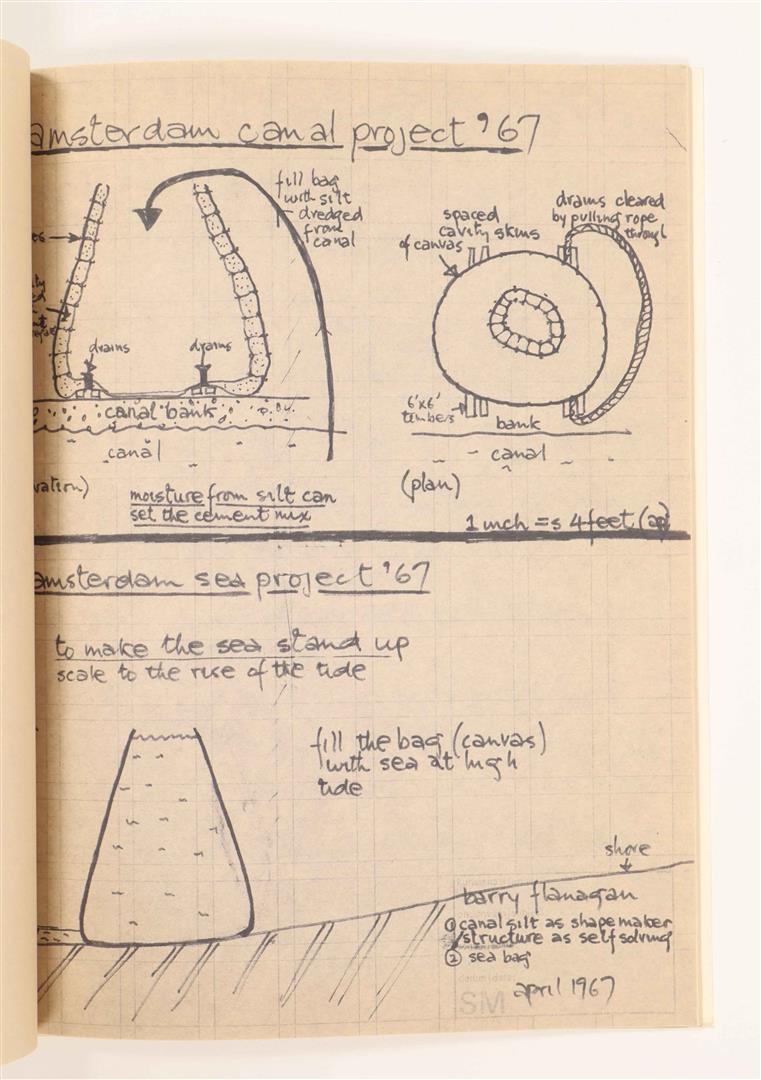 amsterdam canal project '67
fill bag
with silt
dredged
from
canal
drains
drains
canal bank
canal
vation)
moisture from silt can
set the cement mix
spaced
cavity skins
of canvas
drains cleared
by pulling rope
through
6'x6'
timbers
bank
canal
(plan)
1 inch = s 4 feet (ap)
amsterdam sea project '67
to make the sea stand up
scale to the rise of the tide
fill the bag (canvas)
with sea at high
tide
shore
barry flanagan
① canal silt as shape maker
structure as self solving
② sea bag
april 1967
SM